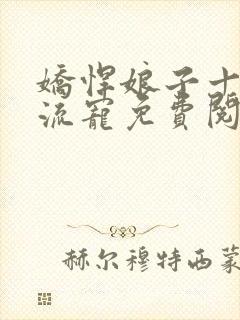 嬌悍娘子十
流寵免費閱
赫尔穆特西蒙